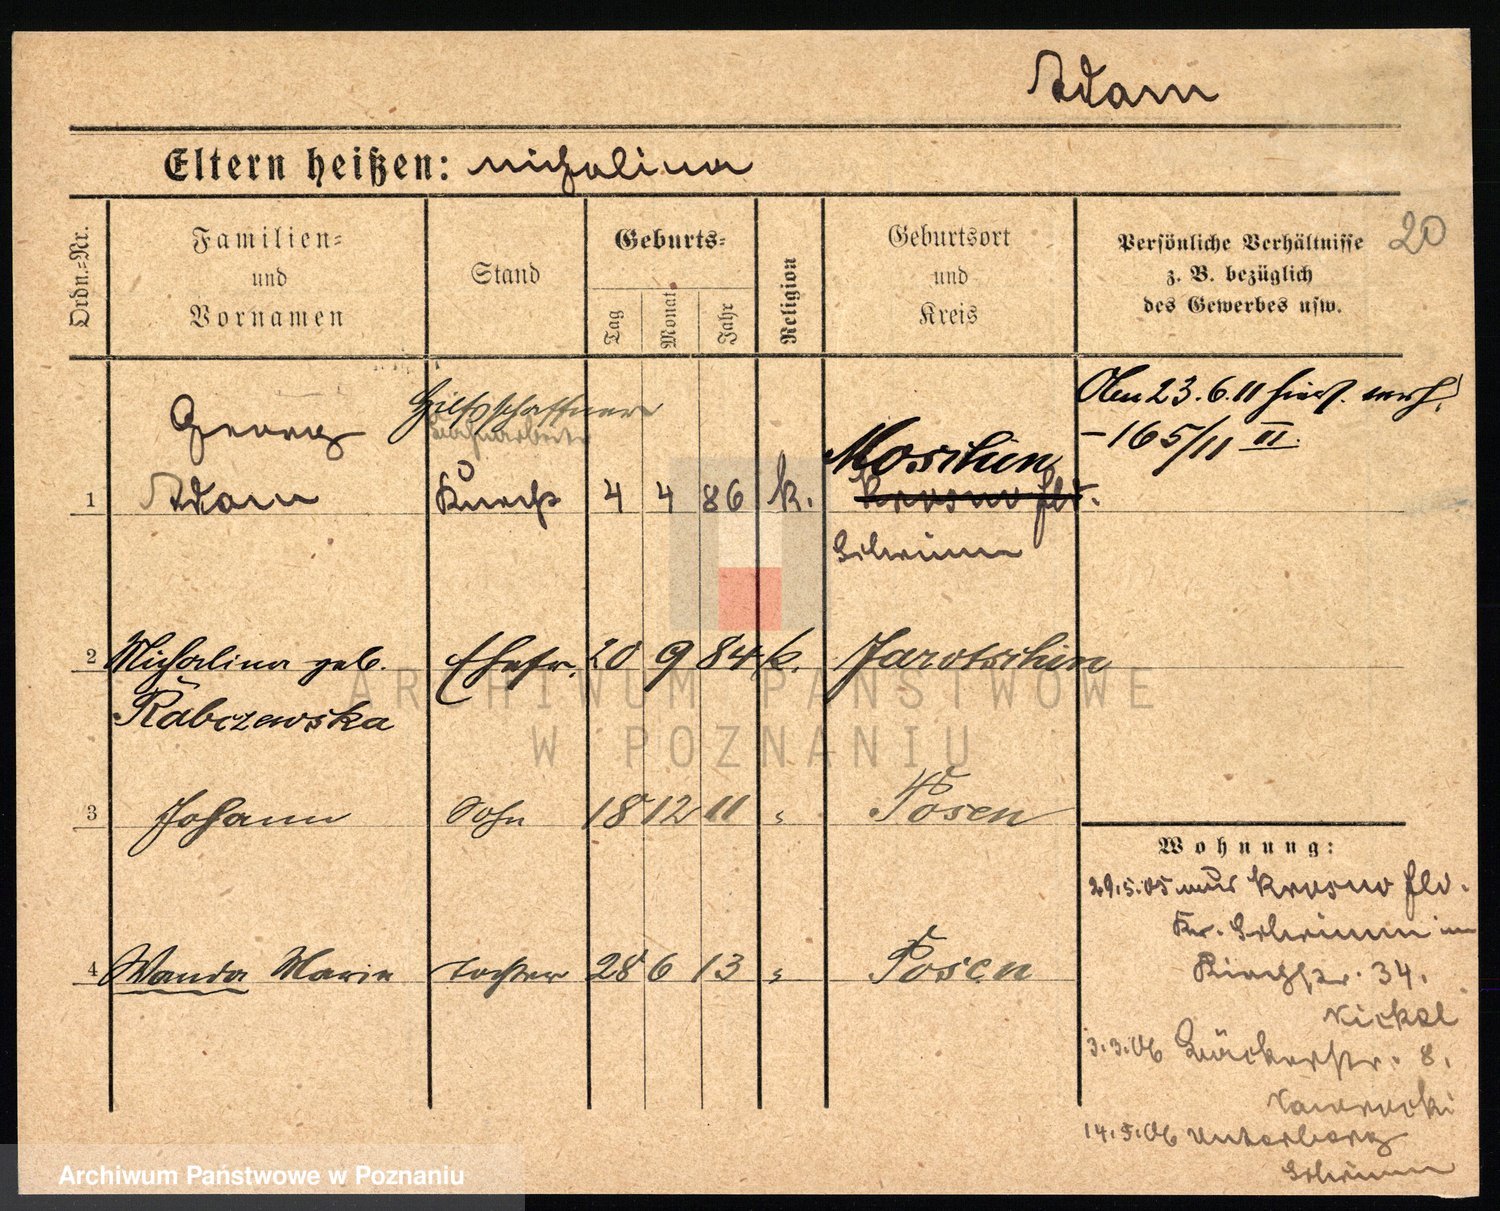 Adam
Eltern heißen: Michalina
20
Ordn.=Nr.
Familien=
und
Vornamen
Stand
Geburts=
Tag
Monat
Jahr
Religion
Geburtsort
und
Kreis
Persönliche Verhältnisse
z. B. bezüglich
des Gewerbes usw.
Georg
Hilfsschaffner
Moschin
1 Adam Knecht 4 4 86 k. Krosno Hld.
Schrimm
23.6.11 hier
165/11 II.
2 Michalina geb. Ehefr. 20 9 84 k. Jarotschin
Rabczewska
3 Johann Sohn 18 12 11 " Posen
4 Wanda Marie Tochter 28 6 13 " Posen
Wohnung:
29.5.05 aus Krosno Hld.
Kr. Schrimm in
34.
Nickel
3.3.06 Bäckerstr. 8.
Nawrocki
14.5.06 Unterberg
Schrimm
ARCHIWUM PAŃSTWOWE
W POZNANIU
Archiwum Państwowe w Poznaniu